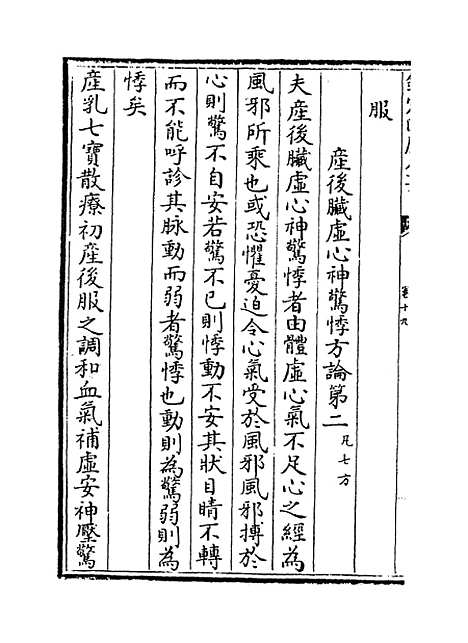 卷十九
服
産後臟虛心神驚悸方論第二 凡七方
夫産後臟虛心神驚悸者由體虛心氣不足心之經為
風邪所乘也或恐懼憂迫令心氣受於風邪風邪搏於
心則驚不自安若驚不已則悸動不安其狀目睛不轉
而不能呼診其脉動而弱者驚悸也動則為驚弱則為
悸矣
産乳七寶散療初産後服之調和血氣補虛安神壓驚